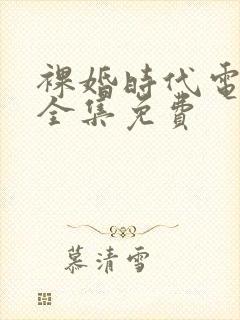 裸婚時代電
全集免費
慕清雪